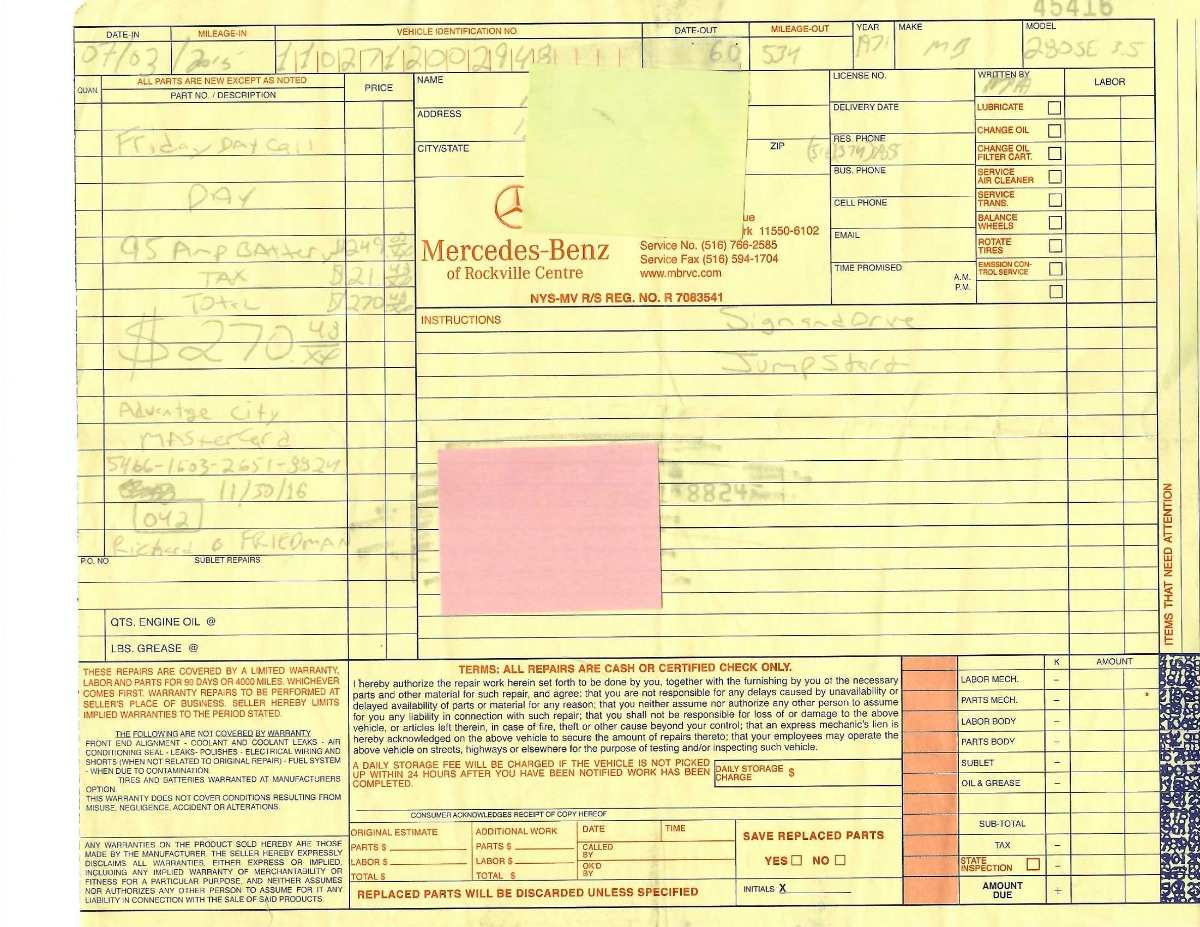 45416
DATE-IN MILEAGE-IN VEHICLE IDENTIFICATION NO. DATE-OUT MILEAGE-OUT YEAR MAKE MODEL
07/03/2015 60 534 1971 MB 280SE 3.5
ALL PARTS ARE NEW EXCEPT AS NOTED
QUAN. PART NO. / DESCRIPTION PRICE
Friday DAY Call
DAY
95 Amp BAtter $249
TAX $21 43
TOTAL $270 43
$270. 43/XX
Advantge City
MAsterCard
11/30/16
Richard FRIEDMAN
P.O. NO. SUBLET REPAIRS
QTS. ENGINE OIL @
LBS. GREASE @
NAME
ADDRESS
CITY/STATE ZIP
LICENSE NO.
DELIVERY DATE
RES. PHONE
BUS. PHONE
CELL PHONE
EMAIL
TIME PROMISED A.M.
P.M.
WRITTEN BY LABOR
LUBRICATE
CHANGE OIL
CHANGE OIL
FILTER CART.
SERVICE
AIR CLEANER
SERVICE
TRANS.
BALANCE
WHEELS
ROTATE
TIRES
EMISSION CON-
TROL SERVICE
ue
rk 11550-6102
Mercedes-Benz
of Rockville Centre
Service No. (516) 766-2585
Service Fax (516) 594-1704
www.mbrvc.com
NYS-MV R/S REG. NO. R 7083541
INSTRUCTIONS
Sign and Drive
Jump Start
ITEMS THAT NEED ATTENTION
THESE REPAIRS ARE COVERED BY A LIMITED WARRANTY,
LABOR AND PARTS FOR 90 DAYS OR 4000 MILES, WHICHEVER
COMES FIRST. WARRANTY REPAIRS TO BE PERFORMED AT
SELLER'S PLACE OF BUSINESS. SELLER HEREBY LIMITS
IMPLIED WARRANTIES TO THE PERIOD STATED.
THE FOLLOWING ARE NOT COVERED BY WARRANTY
FRONT END ALIGNMENT - COOLANT AND COOLANT LEAKS - AIR
CONDITIONING SEAL - LEAKS- POLISHES - ELECTRICAL WIRING AND
SHORTS (WHEN NOT RELATED TO ORIGINAL REPAIR) - FUEL SYSTEM
- WHEN DUE TO CONTAMINATION.
TIRES AND BATTERIES WARRANTED AT MANUFACTURERS
OPTION.
THIS WARRANTY DOES NOT COVER CONDITIONS RESULTING FROM
MISUSE, NEGLIGENCE, ACCIDENT OR ALTERATIONS.
ANY WARRANTIES ON THE PRODUCT SOLD HEREBY ARE THOSE
MADE BY THE MANUFACTURER. THE SELLER HEREBY EXPRESSLY
DISCLAIMS ALL WARRANTIES, EITHER EXPRESS OR IMPLIED,
INCLUDING ANY IMPLIED WARRANTY OF MERCHANTABILITY OR
FITNESS FOR A PARTICULAR PURPOSE, AND NEITHER ASSUMES
NOR AUTHORIZES ANY OTHER PERSON TO ASSUME FOR IT ANY
LIABILITY IN CONNECTION WITH THE SALE OF SAID PRODUCTS.
TERMS: ALL REPAIRS ARE CASH OR CERTIFIED CHECK ONLY.
I hereby authorize the repair work herein set forth to be done by you, together with the furnishing by you of the necessary
parts and other material for such repair, and agree: that you are not responsible for any delays caused by unavailability or
delayed availability of parts or material for any reason; that you neither assume nor authorize any other person to assume
for you any liability in connection with such repair; that you shall not be responsible for loss of or damage to the above
vehicle, or articles left therein, in case of fire, theft or other cause beyond your control; that an express mechanic's lien is
hereby acknowledged on the above vehicle to secure the amount of repairs thereto; that your employees may operate the
above vehicle on streets, highways or elsewhere for the purpose of testing and/or inspecting such vehicle.
A DAILY STORAGE FEE WILL BE CHARGED IF THE VEHICLE IS NOT PICKED
UP WITHIN 24 HOURS AFTER YOU HAVE BEEN NOTIFIED WORK HAS BEEN
COMPLETED.
DAILY STORAGE
CHARGE $
CONSUMER ACKNOWLEDGES RECEIPT OF COPY HEREOF
ORIGINAL ESTIMATE ADDITIONAL WORK DATE TIME
PARTS $ PARTS $ CALLED
BY
LABOR $ LABOR $ OK'D
BY
TOTAL $ TOTAL $
REPLACED PARTS WILL BE DISCARDED UNLESS SPECIFIED
SAVE REPLACED PARTS
YES NO
INITIALS X
K AMOUNT
LABOR MECH. –
PARTS MECH. –
LABOR BODY –
PARTS BODY –
SUBLET –
OIL & GREASE –
SUB-TOTAL
TAX –
STATE
INSPECTION –
AMOUNT
DUE ÷